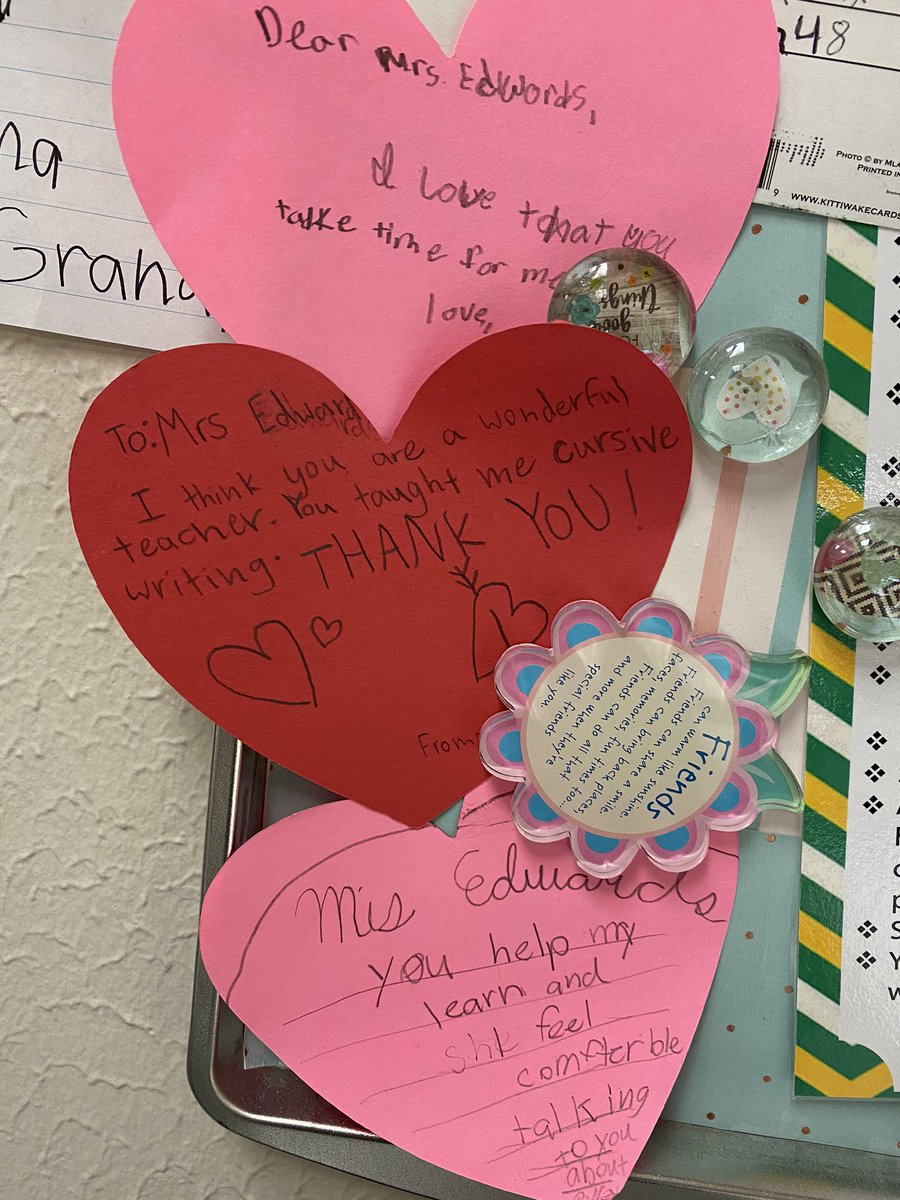 Dear Mrs. Edwords,
I Love that you
take time for me
love,
To: Mrs Edward
I think you are a wonderful
teacher. You taught me cursive
writing. THANK YOU!
From
Mis Edwards
you help my
learn and
feel
comfterble
talking
to you
about
Friends
can warm like sunshine.
Friends can share a smile.
Friends can bring back places,
faces, memories, fun times too...
Friends can do all that
and more when they're
special friends
like you.
good
things
na
Gran
48
PHOTO © BY MLA
PRINTED IN
9
WWW.KITTIWAKECARDS